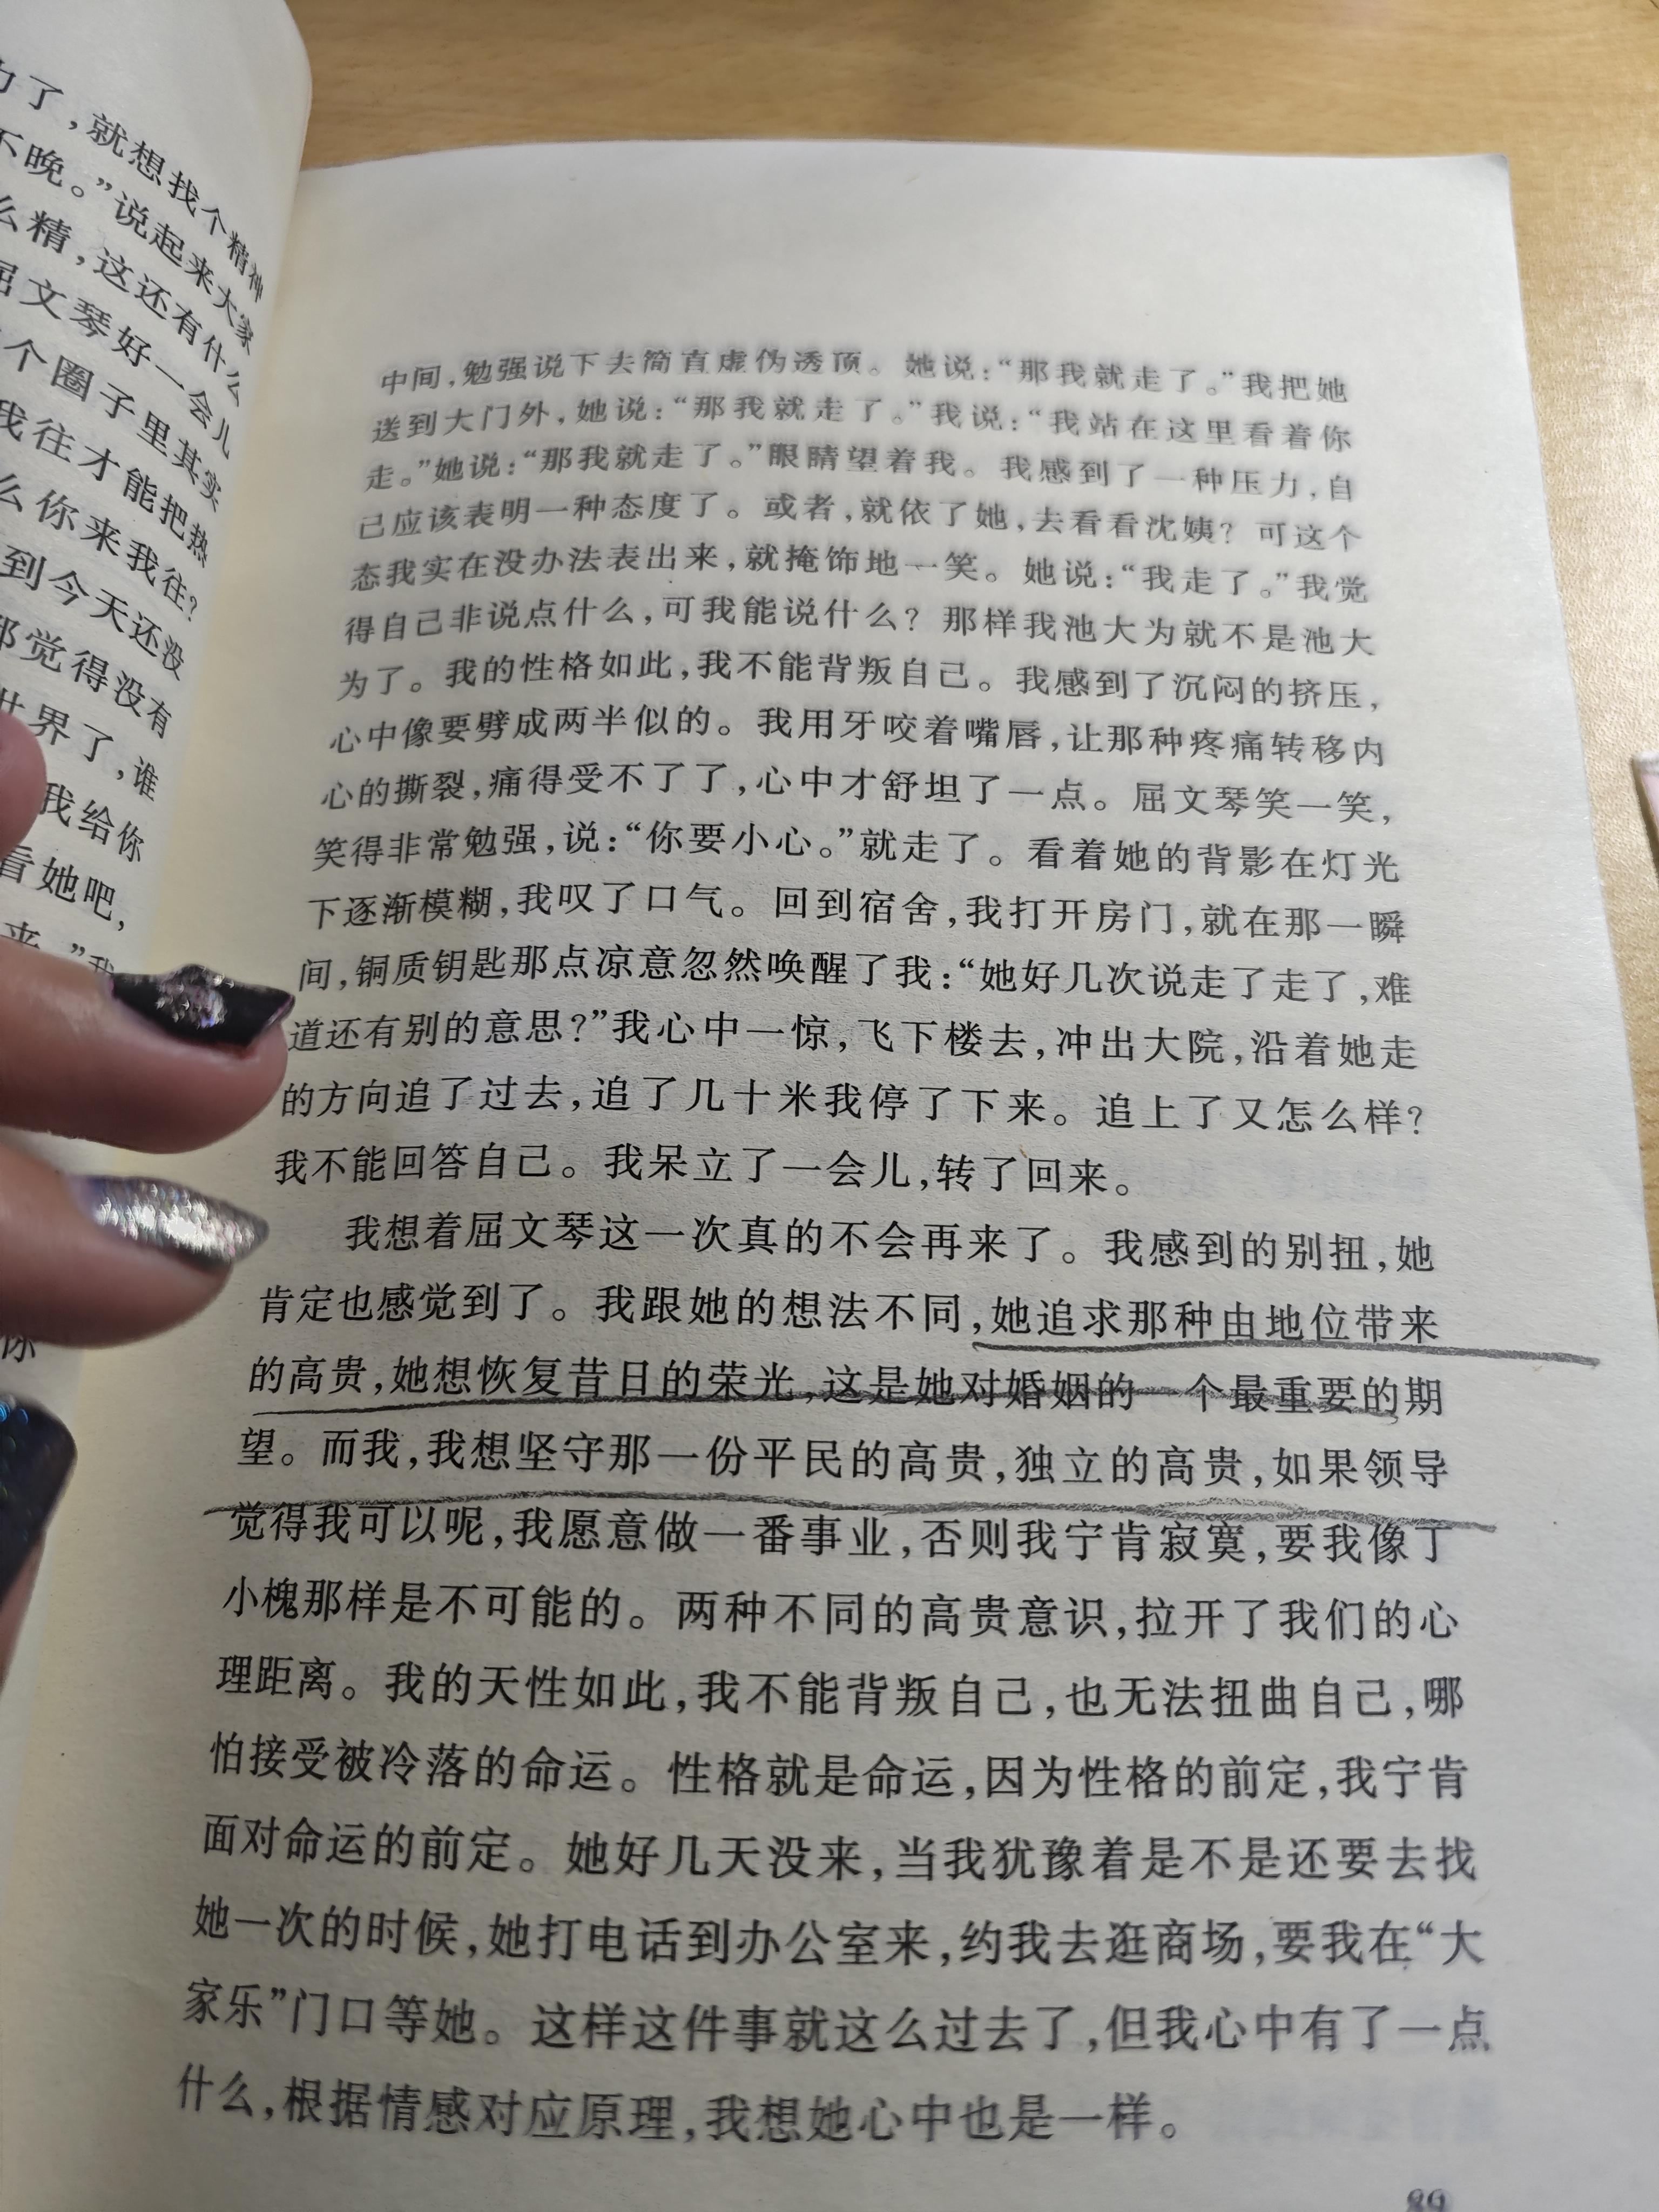 力了，就想找个精神
不晚。”说起来大家
么精，这还有什么
屈文琴好一会儿
个圈子里其实
我往才能把热
么你来我往？
到今天还没
那觉得没有
世界了，谁
我给你
看她吧，
来。”我
你
中间，勉强说下去简直虚伪透顶。她说：“那我就走了。”我把她
送到大门外，她说：“那我就走了。”我说：“我站在这里看着你
走。”她说：“那我就走了。”眼睛望着我。我感到了一种压力，自
己应该表明一种态度了。或者，就依了她，去看看沈姨？可这个
态我实在没办法表出来，就掩饰地一笑。她说：“我走了。”我觉
得自己非说点什么，可我能说什么？那样我池大为就不是池大
为了。我的性格如此，我不能背叛自己。我感到了沉闷的挤压，
心中像要劈成两半似的。我用牙咬着嘴唇，让那种疼痛转移内
心的撕裂，痛得受不了了，心中才舒坦了一点。屈文琴笑一笑，
笑得非常勉强，说：“你要小心。”就走了。看着她的背影在灯光
下逐渐模糊，我叹了口气。回到宿舍，我打开房门，就在那一瞬
间，铜质钥匙那点凉意忽然唤醒了我：“她好几次说走了走了，难
道还有别的意思？”我心中一惊，飞下楼去，冲出大院，沿着她走
的方向追了过去，追了几十米我停了下来。追上了又怎么样？
我不能回答自己。我呆立了一会儿，转了回来。
我想着屈文琴这一次真的不会再来了。我感到的别扭，她
肯定也感觉到了。我跟她的想法不同，她追求那种由地位带来
的高贵，她想恢复昔日的荣光，这是她对婚姻的一个最重要的期
望。而我，我想坚守那一份平民的高贵，独立的高贵，如果领导
觉得我可以呢，我愿意做一番事业，否则我宁肯寂寞，要我像丁
小槐那样是不可能的。两种不同的高贵意识，拉开了我们的心
理距离。我的天性如此，我不能背叛自己，也无法扭曲自己，哪
怕接受被冷落的命运。性格就是命运，因为性格的前定，我宁肯
面对命运的前定。她好几天没来，当我犹豫着是不是还要去找
她一次的时候，她打电话到办公室来，约我去逛商场，要我在“大
家乐”门口等她。这样这件事就这么过去了，但我心中有了一点
什么，根据情感对应原理，我想她心中也是一样。
89